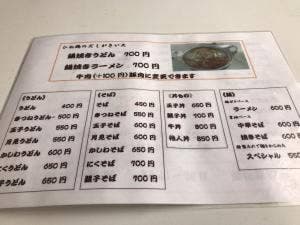 ひね鶏のだしがきいた
鍋焼きうどん 700円
鍋焼きラーメン 700円
牛肉(+100円)豚肉に変更できます
(うどん)
うどん 400円
きつねうどん 500円
玉子うどん 550円
月見うどん 550円
かしわうどん 600円
にくうどん 650円
親子うどん 650円
(そば)
そば 450円
きつねそば 550円
玉子そば 600円
月見そば 600円
かしわそば 650円
にくそば 700円
親子そば 700円
(丼もの)
玉子丼 650円
親子丼 700円
牛丼 850円
他人丼 850円
(麺)
ラーメン 600円
中華そば 600円
焼きそば 600円
スペシャル 550円